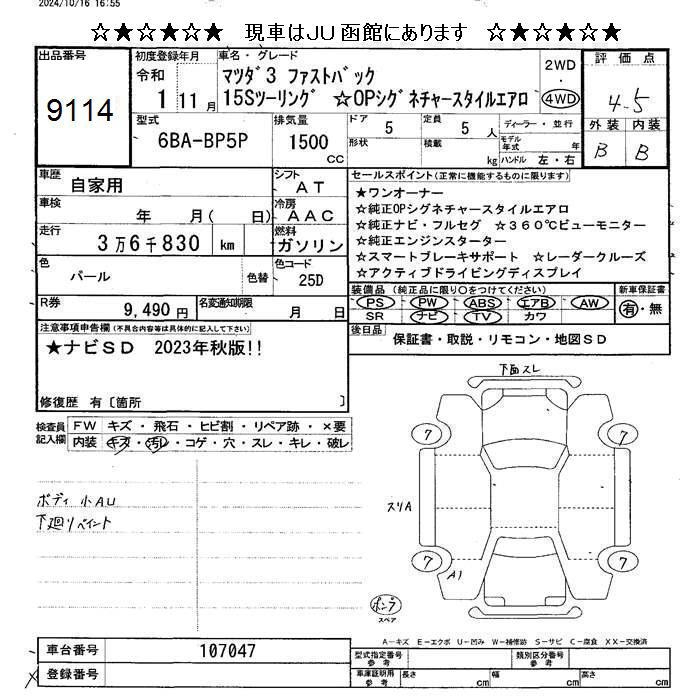 2024/10/16 16:55
☆★☆★☆★ 現車はJU函館にあります ☆★☆★☆★
出品番号
9114
初度登録年月
令和
1 11月
車名・グレード
マツダ3 ファストバック
15Sツーリング ☆OPシグネチャースタイルエアロ
2WD
・
4WD
評価点
4.5
外装 内装
B B
型式
6BA-BP5P
排気量
1500
CC
ドア
5
定員
5 人
形状
積載
kg
ディーラー・並行
モデル年式 年
ハンドル 左・右
車歴
自家用
シフト
AT
車検
年 月( 日)
冷房
AAC
走行
3万6千830 km
燃料
ガソリン
色
パール
色替
色コード
25D
R券
9,490円
名変通知期限
月 日
セールスポイント(正常に機能するものに限ります)
★ワンオーナー
☆純正OPシグネチャースタイルエアロ
☆純正ナビ・フルセグ ☆360℃ビューモニター
★純正エンジンスターター
☆スマートブレーキサポート ☆レーダークルーズ
☆アクティブドライビングディスプレイ
装備品(純正品に限り○をつけてください)
PS PW ABS エアB AW
SR ナビ TV カワ
新車保証書
有・無
後日品
保証書・取説・リモコン・地図SD
注意事項申告欄(不具合内容等は具体的に記入して下さい)
★ナビSD 2023年秋版!!
修復歴 有〔箇所 〕
検査員
記入欄
FW キズ・飛石・ヒビ割・リペア跡・×要
内装 キズ・汚レ・コゲ・穴・スレ・キレ・破レ
ボディ小AU
下廻りペイント
下面スレ
7 7
スリA
7 7
A1
ポンプ
スペア
A-キズ E-エクボ U-凹み W-補修跡 S-サビ C-腐食 XX-交換済
車台番号
107047
登録番号
型式指定番号
参考
類別区分番号
参考
車庫証明用
参考
長さ cm
幅 cm
高さ cm